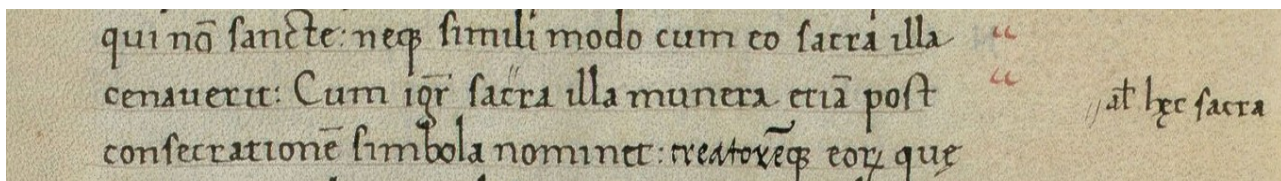 qui nō sancte: neqꝫ simili modo cum eo sacra illa “
cenauerit: Cum igr̄ sacra illa munera etiā post “ // al̄ hęc sacra
consecrationē simbola nominet: creatorēqꝫ eoꝝ quę